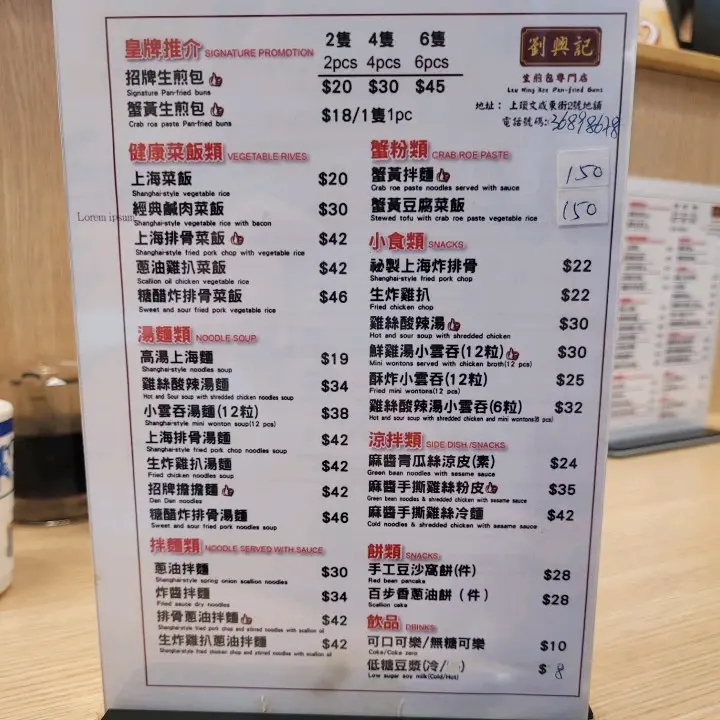 皇牌推介 SIGNATURE PROMOTION 2隻 4隻 6隻
2pcs 4pcs 6pcs
招牌生煎包 $20 $30 $45
Signature Pan-fried buns
蟹黃生煎包 $18/1隻1pc
Crab roe paste Pan-fried buns
劉興記
生煎包專門店
Lau Hing Kee Pan-fried Buns
地址: 上環文咸東街2號地舖
電話號碼: 36898678
健康菜飯類 VEGETABLE RIVES
上海菜飯 $20
Shanghai-style vegetable rice
經典鹹肉菜飯 $30
Shanghai-style vegetable rice with bacon
Lorem ipsum
上海排骨菜飯 $42
Shanghai-style fried pork chop with vegetable rice
蔥油雞扒菜飯 $42
Scallion oil chicken vegetable rice
糖醋炸排骨菜飯 $46
Sweet and sour fried pork vegetable rice
湯麵類 NOODLE SOUP
高湯上海麵 $19
Shanghai-style noodles soup
雞絲酸辣湯麵 $34
Hot and Sour soup with shredded chicken noodles soup
小雲吞湯麵(12粒) $38
Shanghai-style mini wonton soup(12 pcs)
上海排骨湯麵 $42
Shanghai-style fried pork chop noodles soup
生炸雞扒湯麵 $42
Fried chicken noodles soup
招牌擔擔麵 $42
Dan Dan noodles
糖醋炸排骨湯麵 $46
Sweet and sour fried pork noodles soup
拌麵類 NOODLE SERVED WITH SAUCE
蔥油拌麵 $30
Shanghai-style spring onion scallion noodles
炸醬拌麵 $34
Fried sauce dry noodles
排骨蔥油拌麵 $42
Shanghai-style fried pork chop and stirred noodles with scallion oil
生炸雞扒蔥油拌麵 $42
Shanghai-style fried chicken chop and stirred noodles with scallion oil
蟹粉類 CRAB ROE PASTE
蟹黃拌麵 150
Crab roe paste noodles served with sauce
蟹黃豆腐菜飯 150
Stewed tofu with crab roe paste vegetable rice
小食類 SNACKS
祕製上海炸排骨 $22
Shanghai-style fried pork chop
生炸雞扒 $22
Fried chicken chop
雞絲酸辣湯 $30
Hot and sour soup with shredded chicken
鮮雞湯小雲吞(12粒) $30
Mini wontons served with chicken broth(12 pcs)
酥炸小雲吞(12粒) $25
Fried mini wontons(12 pcs)
雞絲酸辣湯小雲吞(6粒) $32
Hot and sour soup with shredded chicken and mini wontons(6 pcs)
涼拌類 SIDE DISH /SNACKS
麻醬青瓜絲涼皮(素) $24
Green bean noodles with sesame sauce
麻醬手撕雞絲粉皮 $35
Green bean noodles & shredded chicken with sesame sauce
麻醬手撕雞絲冷麵 $42
Cold noodles & shredded chicken with sesame sauce
餅類 SNACKS
手工豆沙窩餅(件) $28
Red bean pancake
百步香蔥油餅 (件) $28
Scallion cake
飲品 DRINKS
可口可樂/無糖可樂 $10
Coke/Coke zero
低糖豆漿(冷/ ) $ 8
Low sugar soy milk(Cold/Hot)